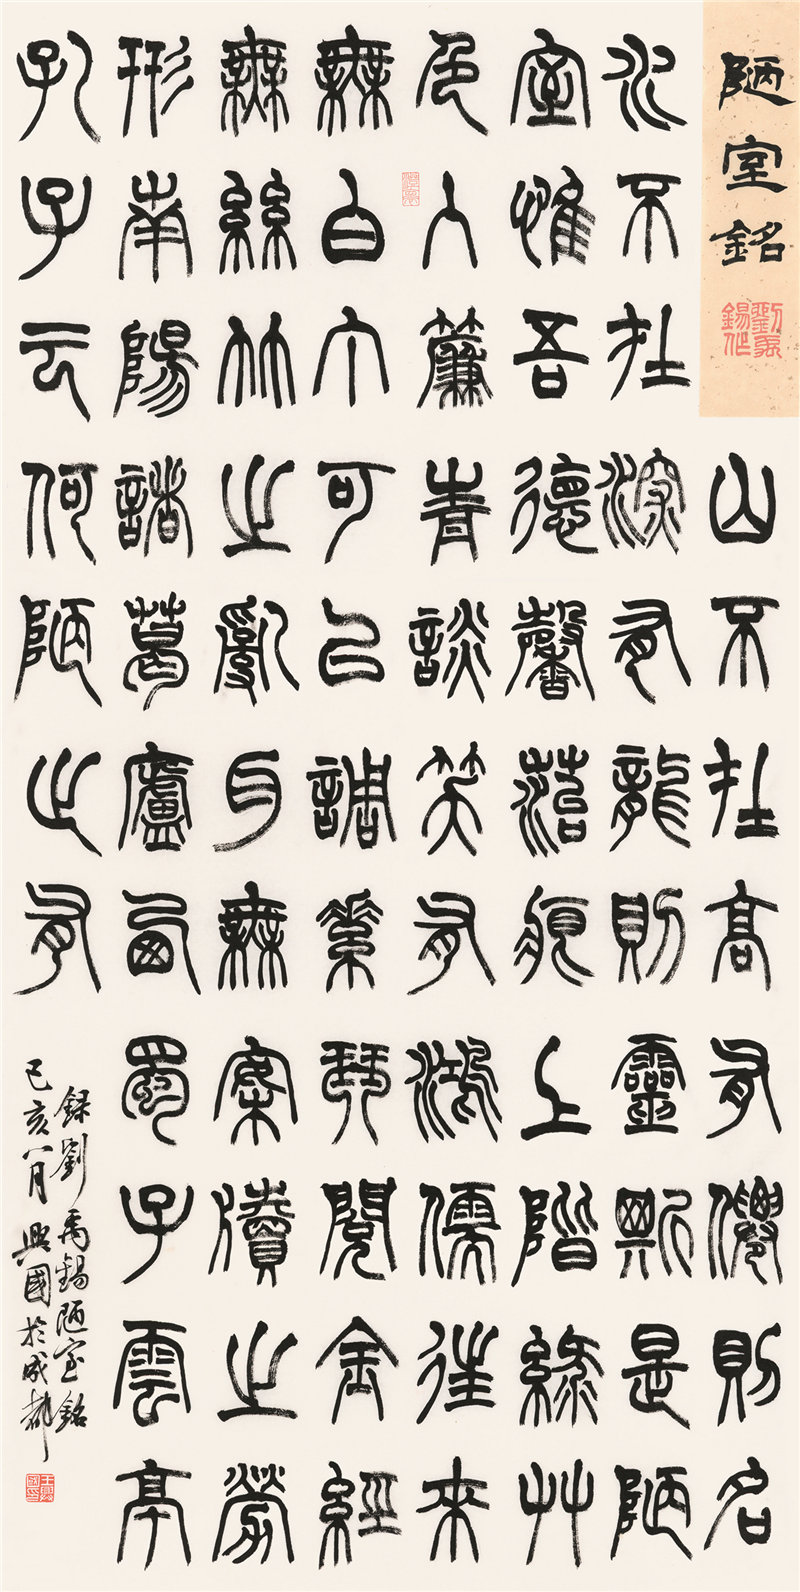 陋室銘
劉禹錫作
山不在高有僊則名
水不在深有龍則靈斯是陋
室惟吾德馨菭痕上階綠艸
色入簾青談笑有鴻儒往來
無白丁可以調素琴閱金經
無絲竹之亂耳無案牘之勞
形南陽諸葛廬西蜀子雲亭
孔子云何陋之有
録劉禹錫陋室銘
己亥八月興國於成都
王興國印